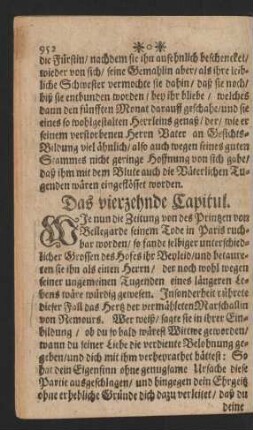 952
die Fürstin/ nachdem sie ihn ansehnlich beschencket/
wieder von sich/ seine Gemahlin aber/ als ihre leib-
liche Schwester vermochte sie dahin/ daß sie noch/
biß sie entbunden worden/ bey ihr bliebe/ welches
dann den fünfften Monat darauff geschahe/ und sie
eines so wohlgestalten Herrleins genaß/ der/ wie er
seinem verstorbenen Herrn Vater an Gesichts-
Bildung viel ähnlich/ also auch wegen seines guten
Stammes nicht geringe Hoffnung von sich gabe/
daß ihm mit dem Blute auch die Väterlichen Tu-
genden wären eingeflösset worden.
Das vierzehnde Capitul.
WJe nun die Zeitung von des Printzen von
Bellegarde seinem Tode in Paris ruch-
bar worden/ so fande selbiger unterschied-
licher Grossen des Hofes ihr Beyleid/ und betaure-
ten sie ihn als einen Herrn/ der noch wohl wegen
seiner ungemeinen Tugenden eines längeren Le-
bens wäre würdig gewesen. Insonderheit rührete
dieser Fall das Hertz der vermähleten Marschallin
von Nemours. Wer weiß/ sagte sie in ihrer Ein-
bildung/ ob du so bald wärest Wittwe geworden/
wann du seiner Liebe die verdiente Belohnung ge-
geben/ und dich mit ihm verheyrathet hättest: So
hat dein Eigensinn ohne genugsame Ursache diese
Partie ausgeschlagen/ und hingegen dein Ehrgeitz
ohne erhebliche Gründe dich dazu verleitet/ daß du
deine